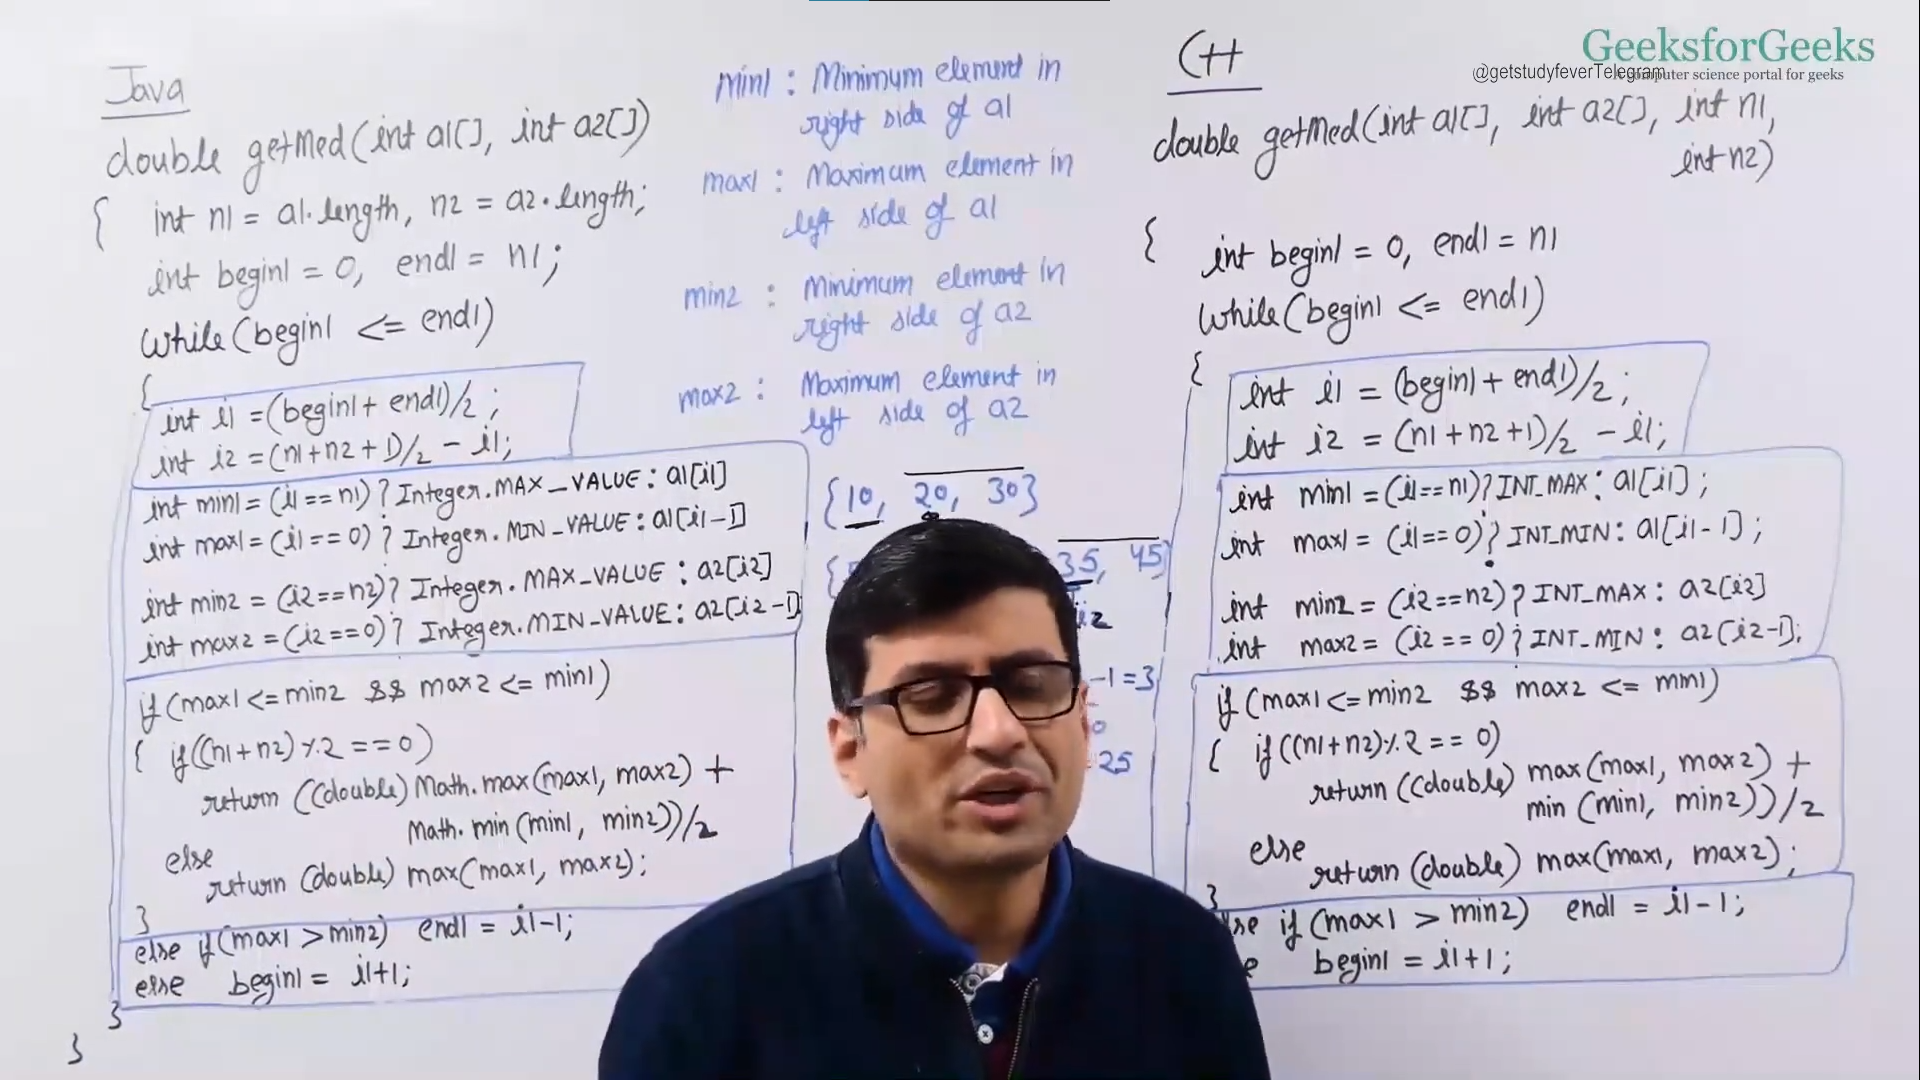 GeeksforGeeks
@getstudyfeverTelegram
computer science portal for geeks
Java
double getMed(int a1[], int a2[])
{ int n1 = a1.length, n2 = a2.length;
int begin1 = 0, end1 = n1;
while(begin1 <= end1)
{
int i1 = (begin1 + end1)/2;
int i2 = (n1+n2+1)/2 - i1;
int min1 = (i1 == n1) ? Integer.MAX_VALUE : a1[i1]
int max1 = (i1 == 0) ? Integer.MIN_VALUE : a1[i1-1]
int min2 = (i2 == n2) ? Integer.MAX_VALUE : a2[i2]
int max2 = (i2 == 0) ? Integer.MIN_VALUE : a2[i2-1]
if (max1 <= min2 && max2 <= min1)
{ if((n1+n2) % 2 == 0)
return ((double) Math.max(max1, max2) +
Math.min(min1, min2))/2
else
return (double) max(max1, max2);
}
else if(max1 > min2) end1 = i1-1;
else begin1 = i1+1;
}
}
min1 : Minimum element in
right side of a1
max1 : Maximum element in
left side of a1
min2 : Minimum element in
right side of a2
max2 : Maximum element in
left side of a2
{10, 20, 30}
{
35, 45
i2
-1 = 3
25
C++
double getMed(int a1[], int a2[], int n1,
int n2)
{ int begin1 = 0, end1 = n1
while(begin1 <= end1)
{
int i1 = (begin1 + end1)/2;
int i2 = (n1+n2+1)/2 - i1;
int min1 = (i1 == n1) ? INT_MAX : a1[i1];
int max1 = (i1 == 0) ? INT_MIN : a1[i1-1];
int min2 = (i2 == n2) ? INT_MAX : a2[i2]
int max2 = (i2 == 0) ? INT_MIN : a2[i2-1];
if (max1 <= min2 && max2 <= min1)
{ if ((n1+n2) % 2 == 0)
return ((double) max(max1, max2) +
min (min1, min2))/2
else
return (double) max(max1, max2);
}
if (max1 > min2) end1 = i1-1;
begin1 = i1+1;